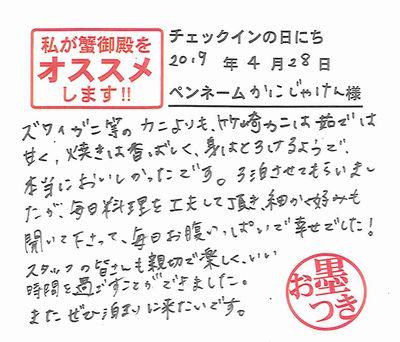 私が蟹御殿を
オススメ
します!!
チェックインの日にち
2019 年 4 月 28 日
ペンネーム かにじゃけん 様
ズワイガニ等のカニよりも、竹崎カニは茹では
甘く、焼きは香ばしく、身はとろけるようで、
本当においしかったです。3泊させてもらいまし
たが、毎日料理を工夫して頂き、細かく好みも
聞いて下さって、毎日お腹いっぱいで幸せでした!
スタッフの皆さんも親切で楽しく、いい
時間を過ごすことができました。
またぜひ泊まりに来たいです。
お墨つき